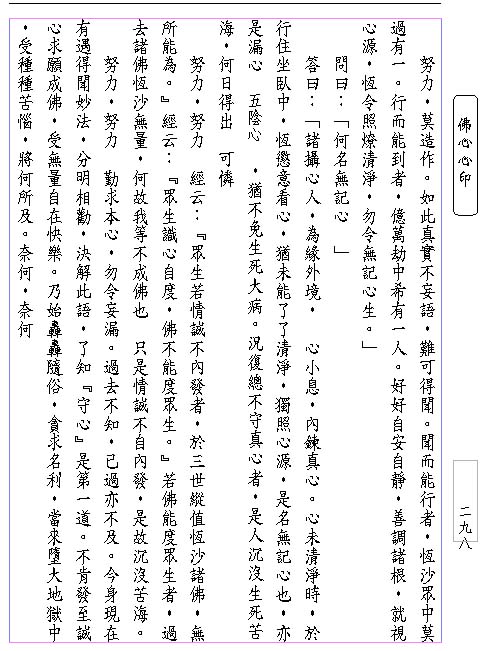 佛心心印
二九八
努力，莫造作。如此真實不妄語，難可得聞。聞而能行者，恆沙眾中莫
過有一。行而能到者，億萬劫中希有一人。好好自安自靜，善調諸根，就視
心源，恆令照燎清淨，勿令無記心生。」
問曰：「何名無記心　」
答曰：「諸攝心人，為緣外境，　心小息，內鍊真心。心未清淨時，於
行住坐臥中，恆懲意看心，猶未能了了清淨，獨照心源，是名無記心也，亦
是漏心　五陰心　，猶不免生死大病。況復總不守真心者，是人沉沒生死苦
海，何日得出　可憐
努力，努力　經云：『眾生若情誠不內發者，於三世縱值恆沙諸佛，無
所能為。』經云：『眾生識心自度，佛不能度眾生。』若佛能度眾生者，過
去諸佛恆沙無量，何故我等不成佛也　只是情誠不自內發，是故沉沒苦海。
努力，努力　勤求本心，勿令妄漏。過去不知，已過亦不及。今身現在
有遇得聞妙法，分明相勸，決解此語，了知『守心』是第一道。不肯發至誠
心求願成佛，受無量自在快樂。乃始轟轟隨俗，貪求名利，當來墮大地獄中
，受種種苦惱，將何所及。奈何，奈何